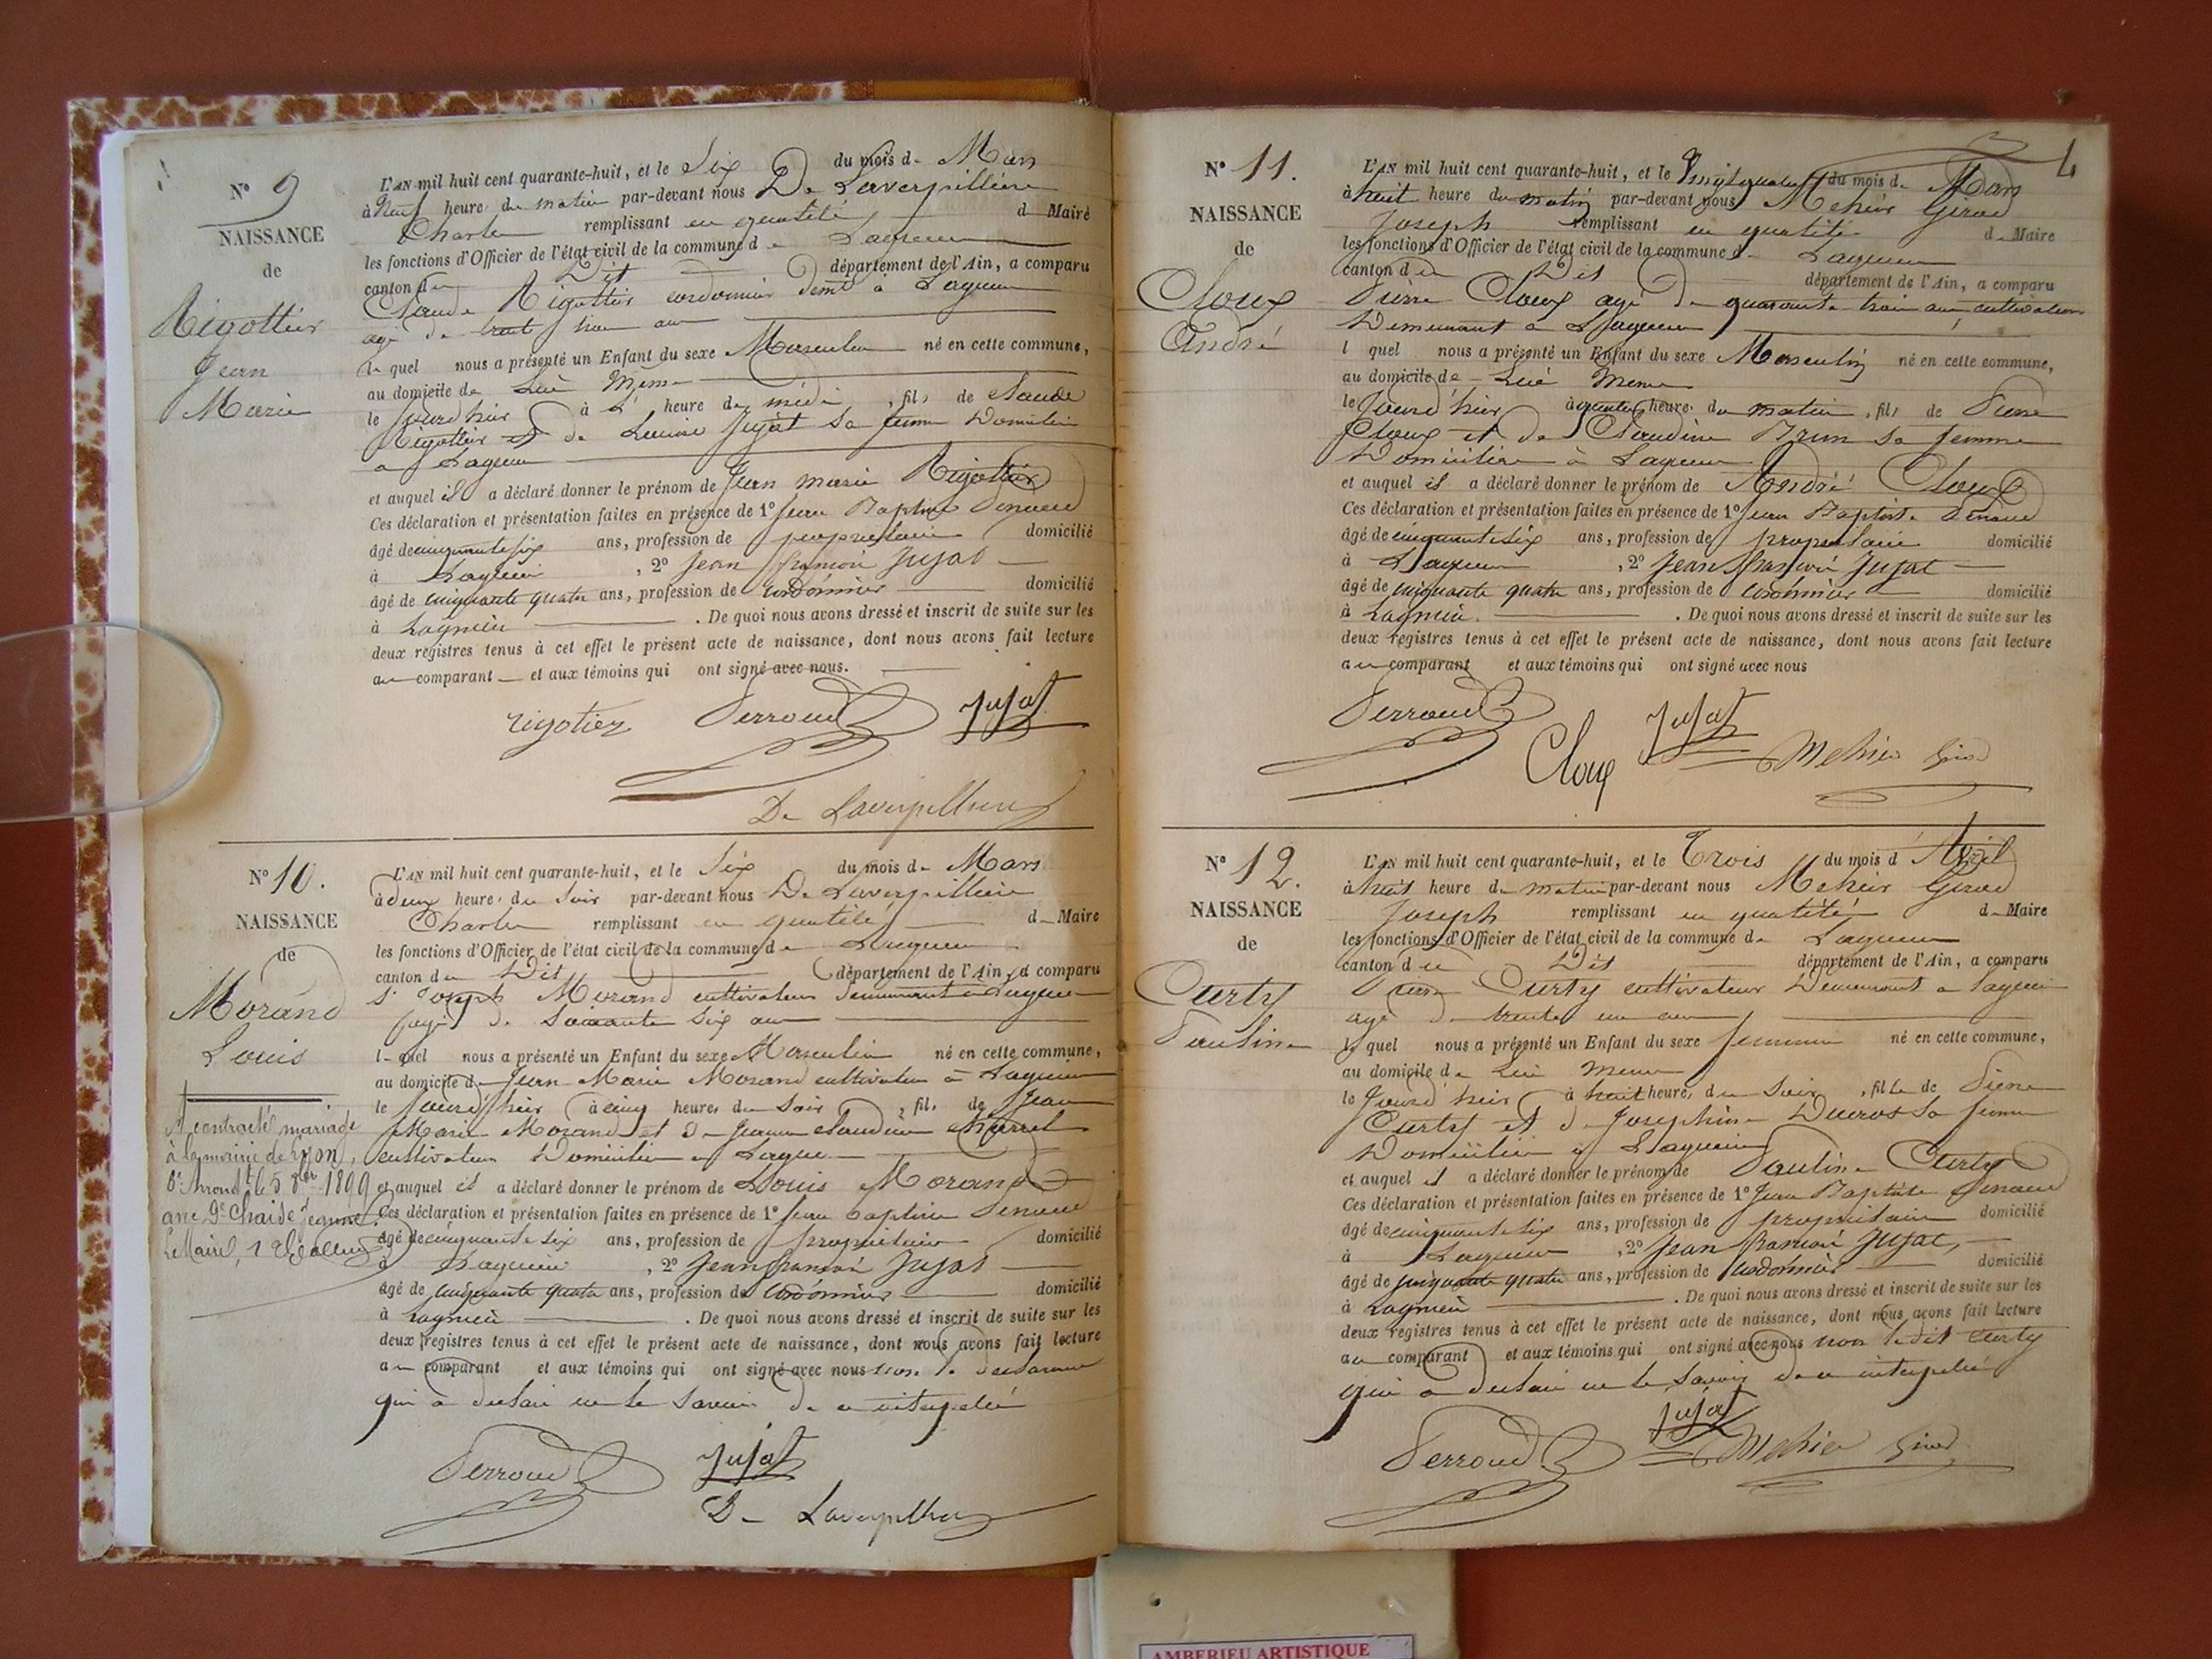 N° 9
NAISSANCE
de
Rigottier
Jean
Marie
L'AN mil huit cent quarante-huit, et le Six du mois de Mars
à Neuf heure du matin par-devant nous De Laverpillière
Charles remplissant en qualité de Maire
les fonctions d'Officier de l'état civil de la commune de Lagnieu
canton du Dit département de l'Ain, a comparu
Claude Rigottier cordonnier demt à Lagnieu
agé de trois ans
le quel nous a présenté un Enfant du sexe Masculin né en cette commune,
au domicile de Lui Meme
le jourd'hier à heure de midi, fils de Claude
Rigottier et de Louise Jujat sa femme Domiciliés
a Lagnieu
et auquel il a déclaré donner le prénom de Jean marie Rigottier
Ces déclaration et présentation faites en présence de 1° Jean Baptiste Perroud
âgé de cinquante six ans, profession de propriétaire domicilié
à Lagnieu, 2° Jean françois Jujat
âgé de cinquante quatre ans, profession de cordonnier domicilié
à Lagnieu. De quoi nous avons dressé et inscrit de suite sur les
deux registres tenus à cet effet le présent acte de naissance, dont nous avons fait lecture
au comparant et aux témoins qui ont signé avec nous.
rigotier Perroud Jujat
De Laverpilliere
N° 10.
NAISSANCE
de
Morand
Louis
A contracté mariage
à la mairie de Lyon,
le 5 1899
avec Chaise Jeanne
Le Maire,
L'AN mil huit cent quarante-huit, et le Six du mois de Mars
à deux heure du Soir par-devant nous De Laverpillière
Charles remplissant en qualité de Maire
les fonctions d'Officier de l'état civil de la commune de Lagnieu
canton du Dit département de l'Ain, a comparu
Sr Joseph Morand cultivateur demeurant à Lagnieu
agé de Soixante Six ans
le quel nous a présenté un Enfant du sexe Masculin né en cette commune,
au domicile de Jean Marie Morand cultivateur à Lagnieu
le jourd'hier à cinq heures du Soir, fils de Jean
Marie Morand et de Jeanne Claudine
cultivateurs Domiciliés à Lagnieu
et auquel il a déclaré donner le prénom de Louis Morand
Ces déclaration et présentation faites en présence de 1° Jean Baptiste Perroud
âgé de cinquante six ans, profession de propriétaire domicilié
à Lagnieu, 2° Jean françois Jujat
âgé de cinquante quatre ans, profession de cordonnier domicilié
à Lagnieu. De quoi nous avons dressé et inscrit de suite sur les
deux registres tenus à cet effet le présent acte de naissance, dont nous avons fait lecture
au comparant et aux témoins qui ont signé avec nous non le declarant
qui a declaré ne le Savoir de ce interpellé
Perroud Jujat
De Laverpilliere
4
N° 11.
NAISSANCE
de
Cloux
André
L'AN mil huit cent quarante-huit, et le Vingt quatre du mois de Mars
à huit heure du matin par-devant nous Mehier Girod
Joseph remplissant en qualité de Maire
les fonctions d'Officier de l'état civil de la commune de Lagnieu
canton du Dit département de l'Ain, a comparu
Pierre Cloux agé de quarante trois ans cultivateur
Demeurant à Lagnieu
l quel nous a présenté un Enfant du sexe Masculin né en cette commune,
au domicile de Lui Meme
le Jourd'hier à quatre heure du matin, fils de Pierre
Cloux et de Claudine Brun sa femme
Domiciliés à Lagnieu
et auquel il a déclaré donner le prénom de André Cloux
Ces déclaration et présentation faites en présence de 1° Jean Baptiste Perroud
âgé de cinquante six ans, profession de propriétaire domicilié
à Lagnieu, 2° Jean françois Jujat
âgé de cinquante quatre ans, profession de cordonnier domicilié
à Lagnieu. De quoi nous avons dressé et inscrit de suite sur les
deux registres tenus à cet effet le présent acte de naissance, dont nous avons fait lecture
au comparant et aux témoins qui ont signé avec nous
Perroud Cloux Jujat Mehier Girod
N° 12.
NAISSANCE
de
Curty
Pauline
L'AN mil huit cent quarante-huit, et le Trois du mois d'Avril
à huit heure du matin par-devant nous Mehier Girod
Joseph remplissant en qualité de Maire
les fonctions d'Officier de l'état civil de la commune de Lagnieu
canton du Dit département de l'Ain, a comparu
Pierre Curty cultivateur Demeurant à Lagnieu
agé de trente un ans
le quel nous a présenté un Enfant du sexe feminin né en cette commune,
au domicile de Lui meme
le Jourd'hier à huit heure du Soir, fille de Pierre
Curty et de Josephine Ducros sa femme
Domiciliés à Lagnieu
et auquel il a déclaré donner le prénom de Pauline Curty
Ces déclaration et présentation faites en présence de 1° Jean Baptiste Perroud
âgé de cinquante six ans, profession de propriétaire domicilié
à Lagnieu, 2° Jean françois Jujat,
âgé de cinquante quatre ans, profession de cordonnier domicilié
à Lagnieu. De quoi nous avons dressé et inscrit de suite sur les
deux registres tenus à cet effet le présent acte de naissance, dont nous avons fait lecture
au comparant et aux témoins qui ont signé avec nous non le dit Curty
qui a declaré ne le Savoir de ce interpellé
Perroud Jujat Mehier Girod
AMBERIEU ARTISTIQUE